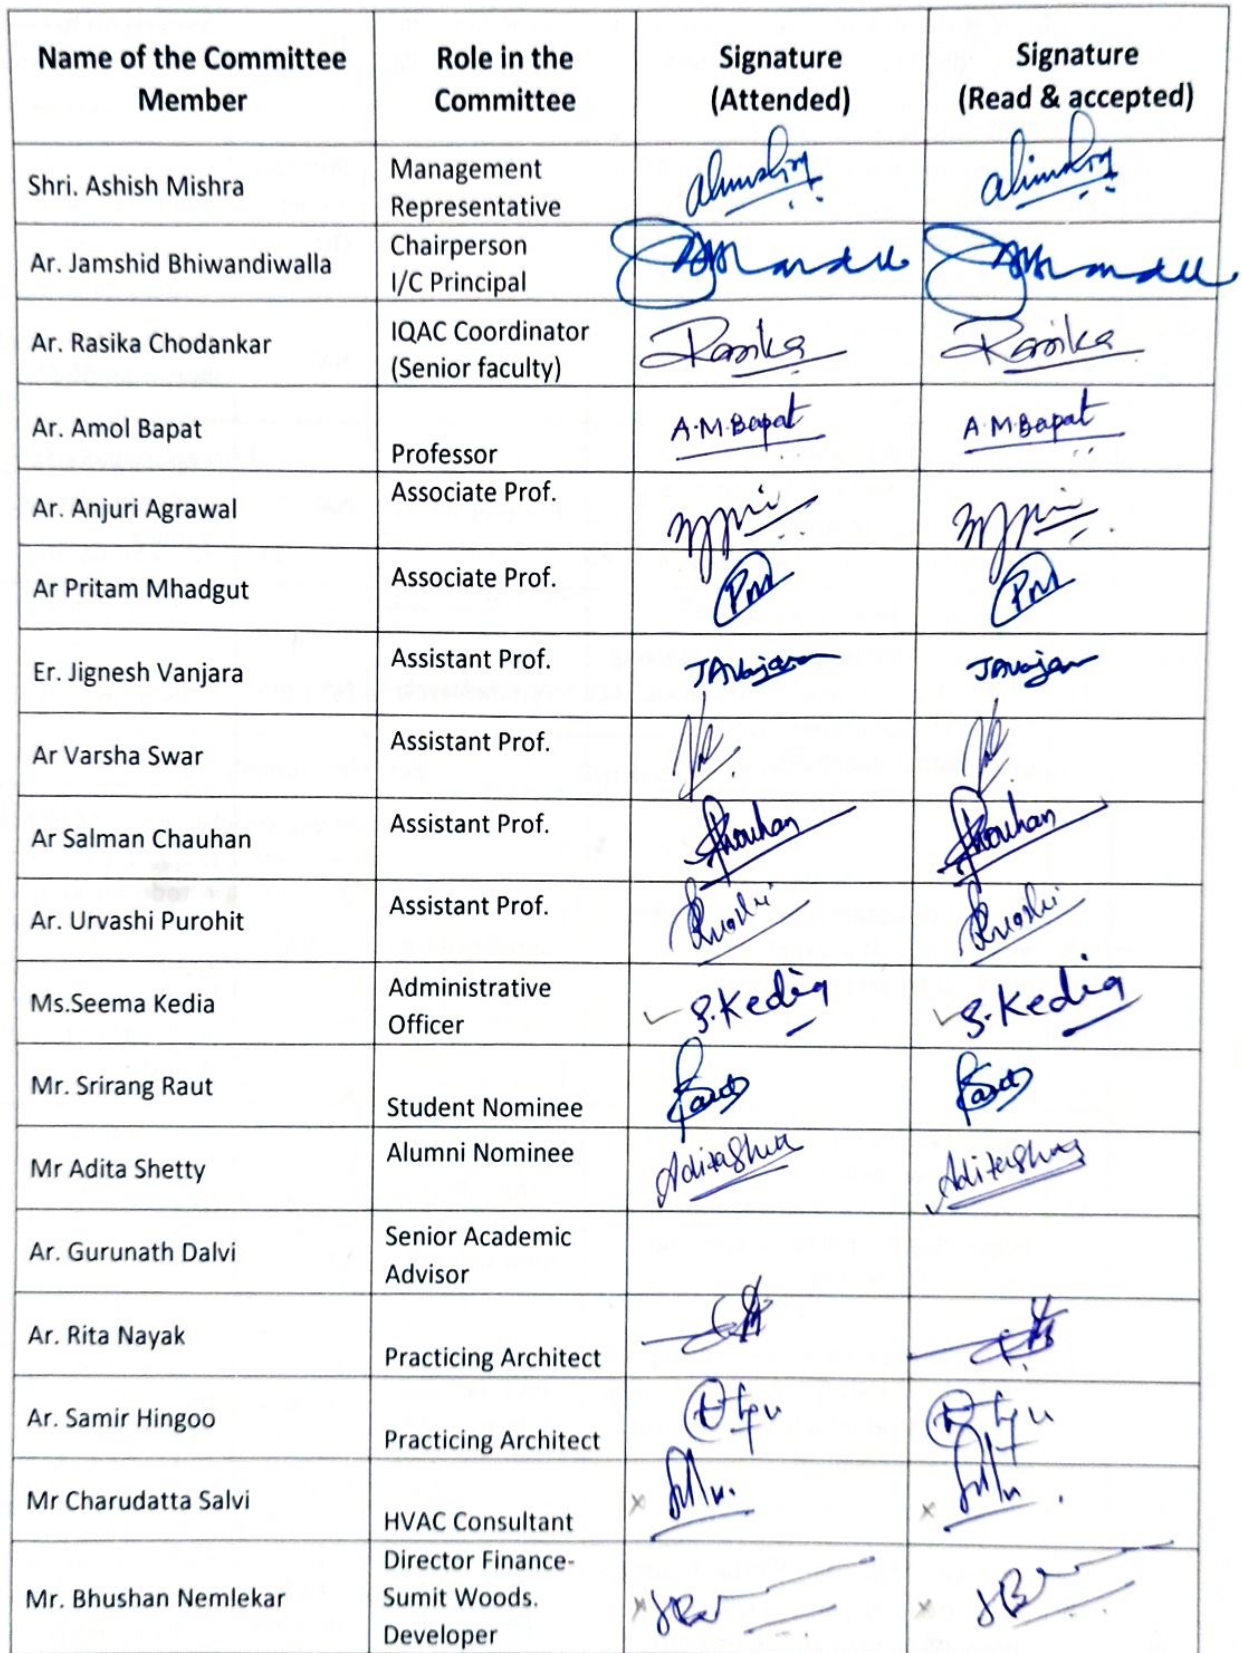 Name of the Committee Member
Role in the Committee
Signature (Attended)
Signature (Read & accepted)
Shri. Ashish Mishra
Management
Representative
Ar. Jamshid Bhiwandiwalla
Chairperson
I/C Principal
Ar. Rasika Chodankar
IQAC Coordinator
(Senior faculty)
Rasika
Rasika
Ar. Amol Bapat
Professor
A.M.Bapat
A.M.Bapat
Ar. Anjuri Agrawal
Associate Prof.
Ar Pritam Mhadgut
Associate Prof.
PM
PM
Er. Jignesh Vanjara
Assistant Prof.
Ar Varsha Swar
Assistant Prof.
Ar Salman Chauhan
Assistant Prof.
Ar. Urvashi Purohit
Assistant Prof.
Ms.Seema Kedia
Administrative
Officer
S.Kedia
S.Kedia
Mr. Srirang Raut
Student Nominee
Mr Adita Shetty
Alumni Nominee
Ar. Gurunath Dalvi
Senior Academic
Advisor
Ar. Rita Nayak
Practicing Architect
Ar. Samir Hingoo
Practicing Architect
Mr Charudatta Salvi
HVAC Consultant
Mr. Bhushan Nemlekar
Director Finance-
Sumit Woods.
Developer